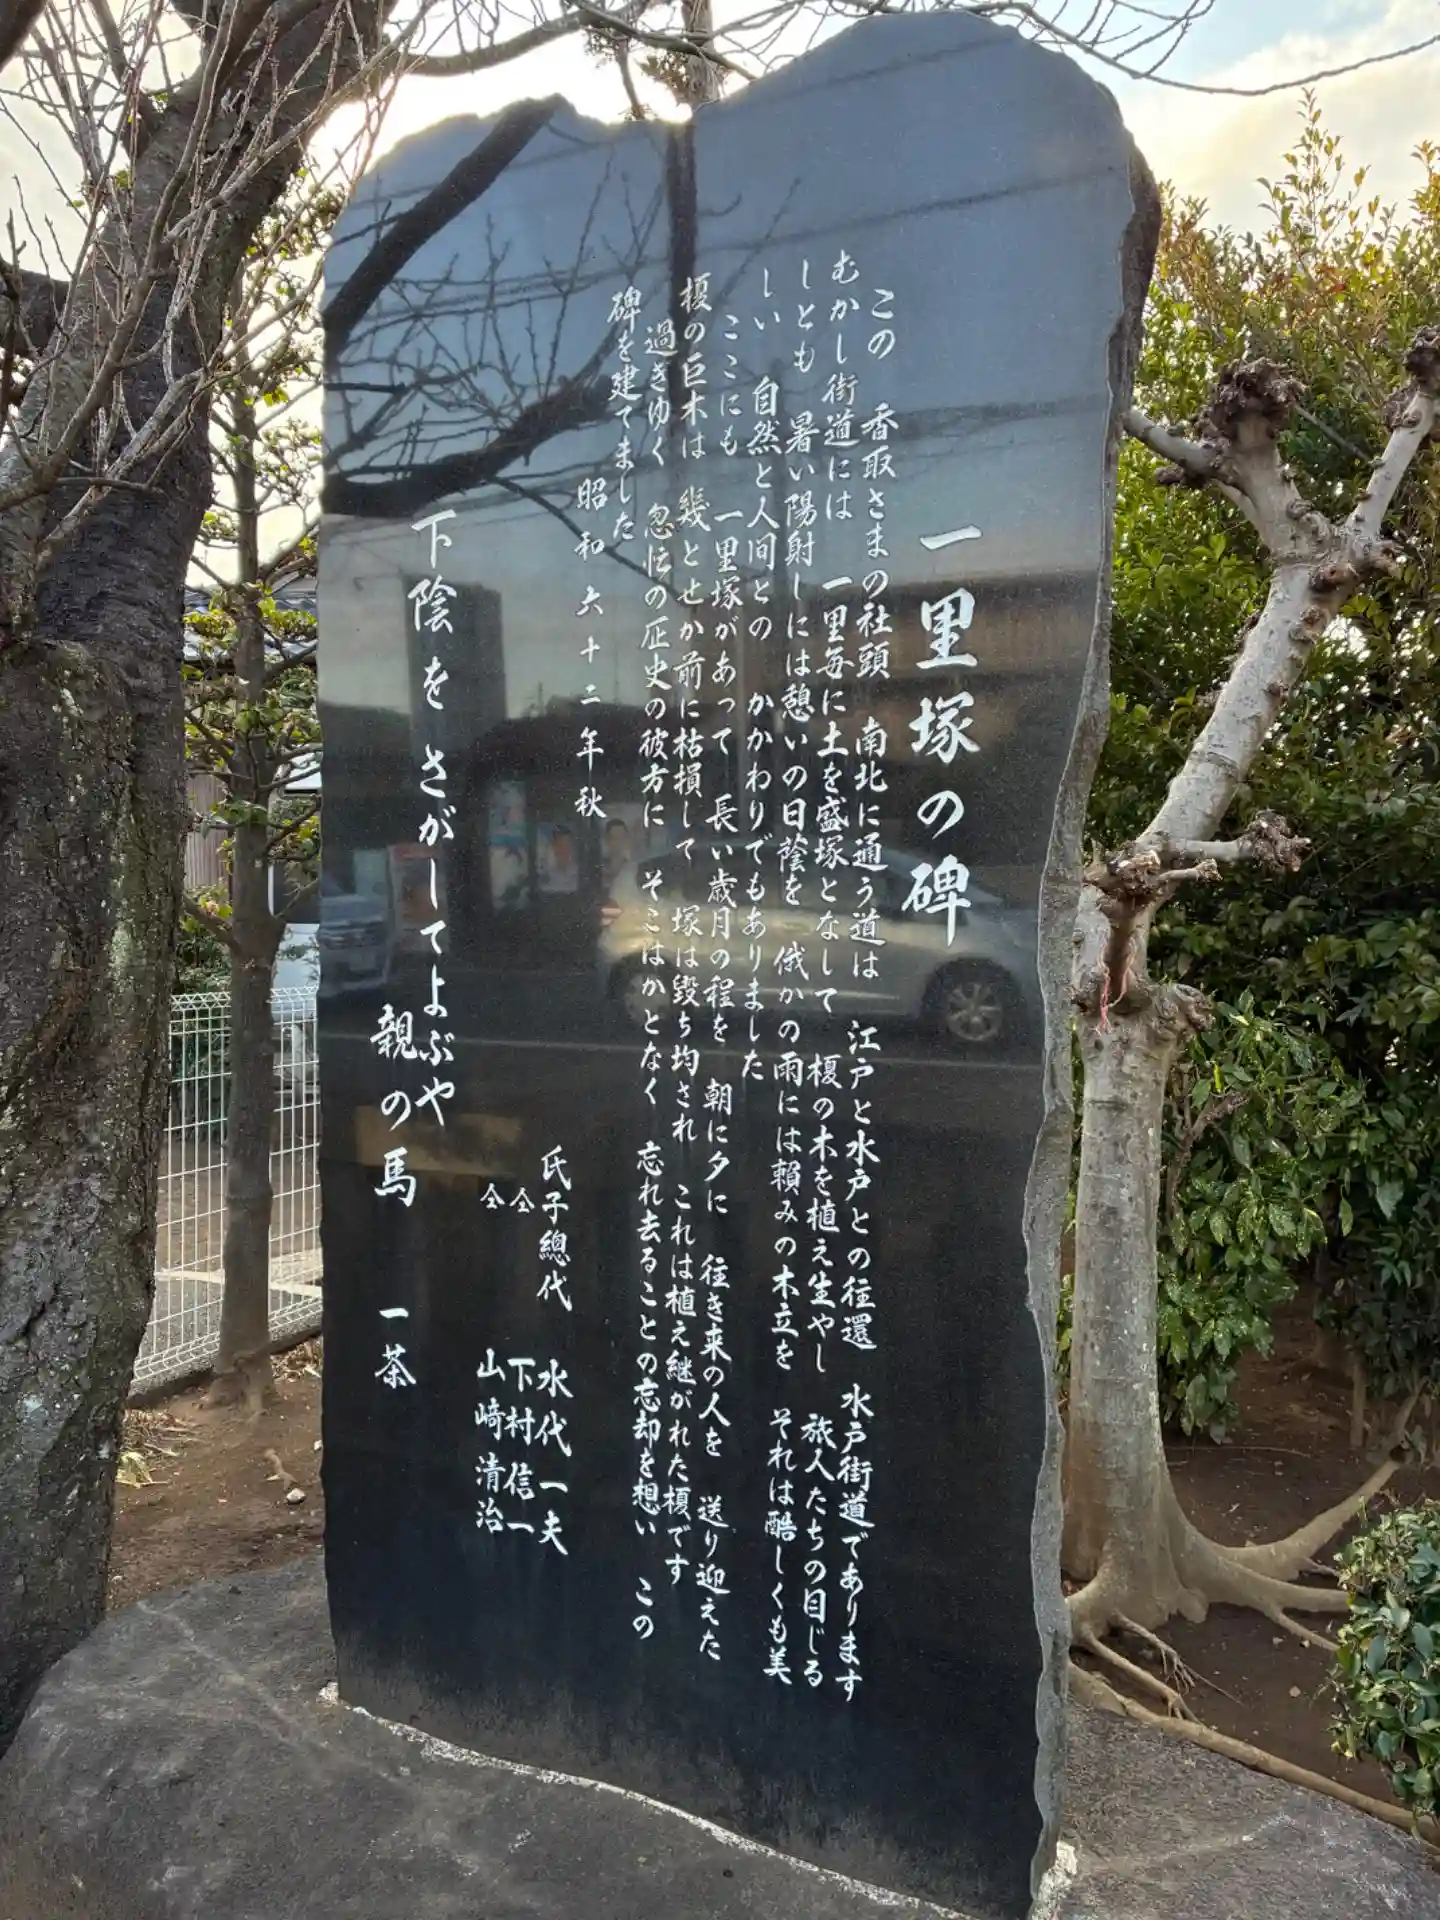 一里塚の碑
この 香取さまの社頭 南北に通う道は 江戸と水戸との往還 水戸街道であります
むかし街道には 一里毎に土を盛塚となして 榎の木を植え生やし 旅人たちの目じる
しとも 暑い陽射しには憩いの日蔭を 俄かの雨には頼みの木立を それは酷しくも美
しい 自然と人間との かかわりでもありました
ここにも 一里塚があって 長い歳月の程を 朝に夕に 往き来の人を 送り迎えた
榎の巨木は 幾とせか前に枯損して 塚は毀ち均され これは植え継がれた榎です
過きゆく 忽忙の歴史の彼方に そこはかとなく 忘れ去ることの忘却を想い この
碑を建てました
昭和六十二年秋
氏子總代 水代一夫
仝 下村信一
仝 山﨑清治
下陰をさがしてよぶや
親の馬 一茶